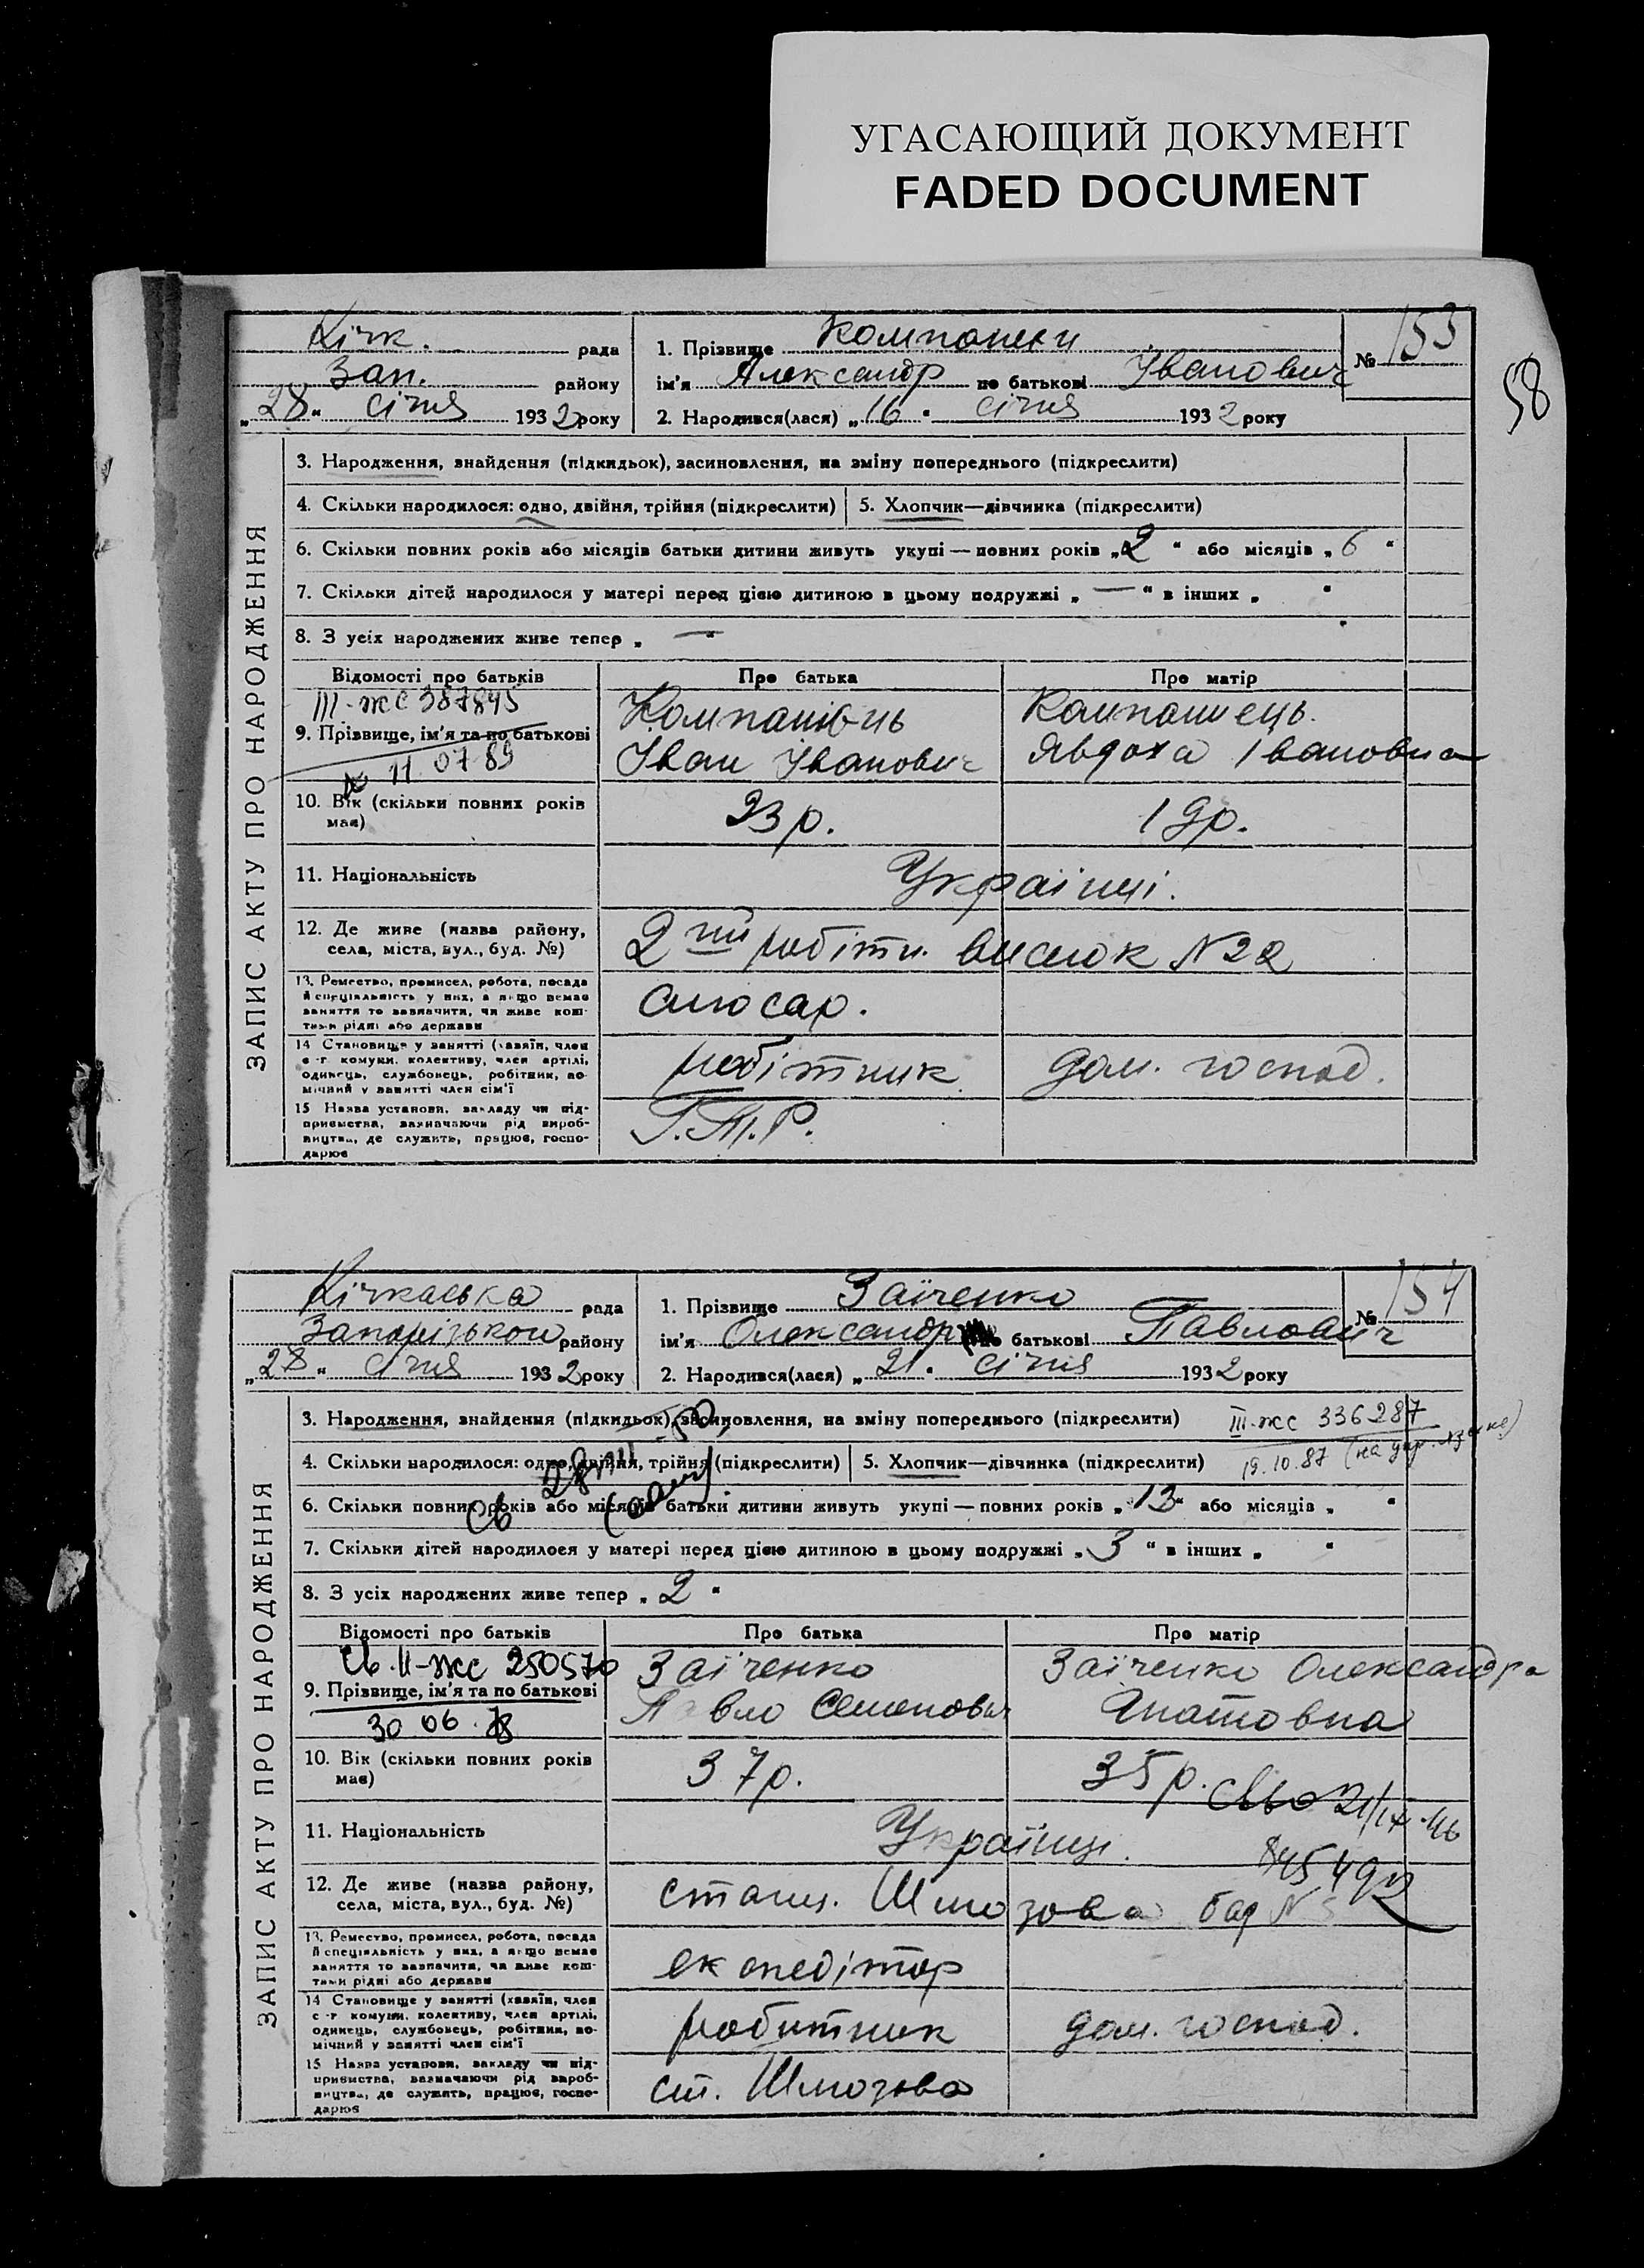 УГАСАЮЩИЙ ДОКУМЕНТ
FADED DOCUMENT
58
Кічк. рада
Зап. району
„28“ січня 1932 року
1. Прізвище Компанеец
ім'я Александр по батькові Іванович
2. Народився(лася) „16“ січня 1932 року
№ 153
ЗАПИС АКТУ ПРО НАРОДЖЕННЯ
3. Народження, знайдення (підкидьок), засиновлення, на зміну попереднього (підкреслити)
4. Скільки народилося: одно, двійня, трійня (підкреслити) 5. Хлопчик—дівчинка (підкреслити)
6. Скільки повних років або місяців батьки дитини живуть укупі — повних років „2“ або місяців „6“
7. Скільки дітей народилося у матері перед цією дитиною в цьому подружжі „—“ в інших „ “
8. З усіх народжених живе тепер „—“
Відомості про батьків Про батька Про матір
III-жс 387845
9. Прізвище, ім'я та по батькові
11 07 89
Компанієць
Іван Іванович
Компаниець
Явдоха Івановна
10. Вік (скільки повних років має) 23 р. 19 р.
11. Національність Українці.
12. Де живе (назва району, села, міста, вул., буд. №) 2ий робітн. виселок N 22
13. Ремество, промисел, робота, посада й спеціяльність у них, а якщо немає заняття то зазначити, чи живе коштами рідні або держави
слюсар.
14 Становище у занятті (хазяїн, член с.-г комуни, колективу, член артілі, одинець, службовець, робітник, помічний у занятті член сім'ї
робітник дом. господ.
15 Назва установи, закладу чи підприємства, зазначаючи рід виробництва, де служить, працює, господарює
Кічкаська рада
Запорізького району
„28“ січня 1932 року
1. Прізвище Заїченко
ім'я Олександр по батькові Павлович
2. Народився(лася) „21“ січня 1932 року
№ 154
ЗАПИС АКТУ ПРО НАРОДЖЕННЯ
3. Народження, знайдення (підкидьок), засиновлення, на зміну попереднього (підкреслити)
III-жс 336287
4. Скільки народилося: одно, двійня, трійня (підкреслити) 5. Хлопчик—дівчинка (підкреслити)
19.10.87 (на укр.
6. Скільки повних років або місяців батьки дитини живуть укупі — повних років „13“ або місяців „ “
7. Скільки дітей народилося у матері перед цією дитиною в цьому подружжі „3“ в інших „ “
8. З усіх народжених живе тепер „2“
Відомості про батьків Про батька Про матір
Св. II-жс 250570
9. Прізвище, ім'я та по батькові
30 06 78
Заїченко
Павло Семенович
Заїченко Олександра
Гнатовна
10. Вік (скільки повних років має) 37 р. 35 р.
11. Національність Українці.
12. Де живе (назва району, села, міста, вул., буд. №) станц. Шлюзова бар N
13. Ремество, промисел, робота, посада й спеціяльність у них, а якщо немає заняття то зазначити, чи живе коштами рідні або держави
експедітор
14 Становище у занятті (хазяїн, член с.-г комуни, колективу, член артілі, одинець, службовець, робітник, помічний у занятті член сім'ї
робитник дом. господ.
15 Назва установи, закладу чи підприємства, зазначаючи рід виробництва, де служить, працює, господарює
ст. Шлюзова